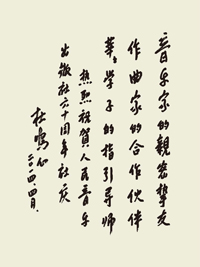 音乐家的親密摯友
作曲家的合作伙伴
莘莘学子的指引导师
熱烈祝賀人民音乐
出版社六十周年社庆
杜鸣心
二〇一四.四月.